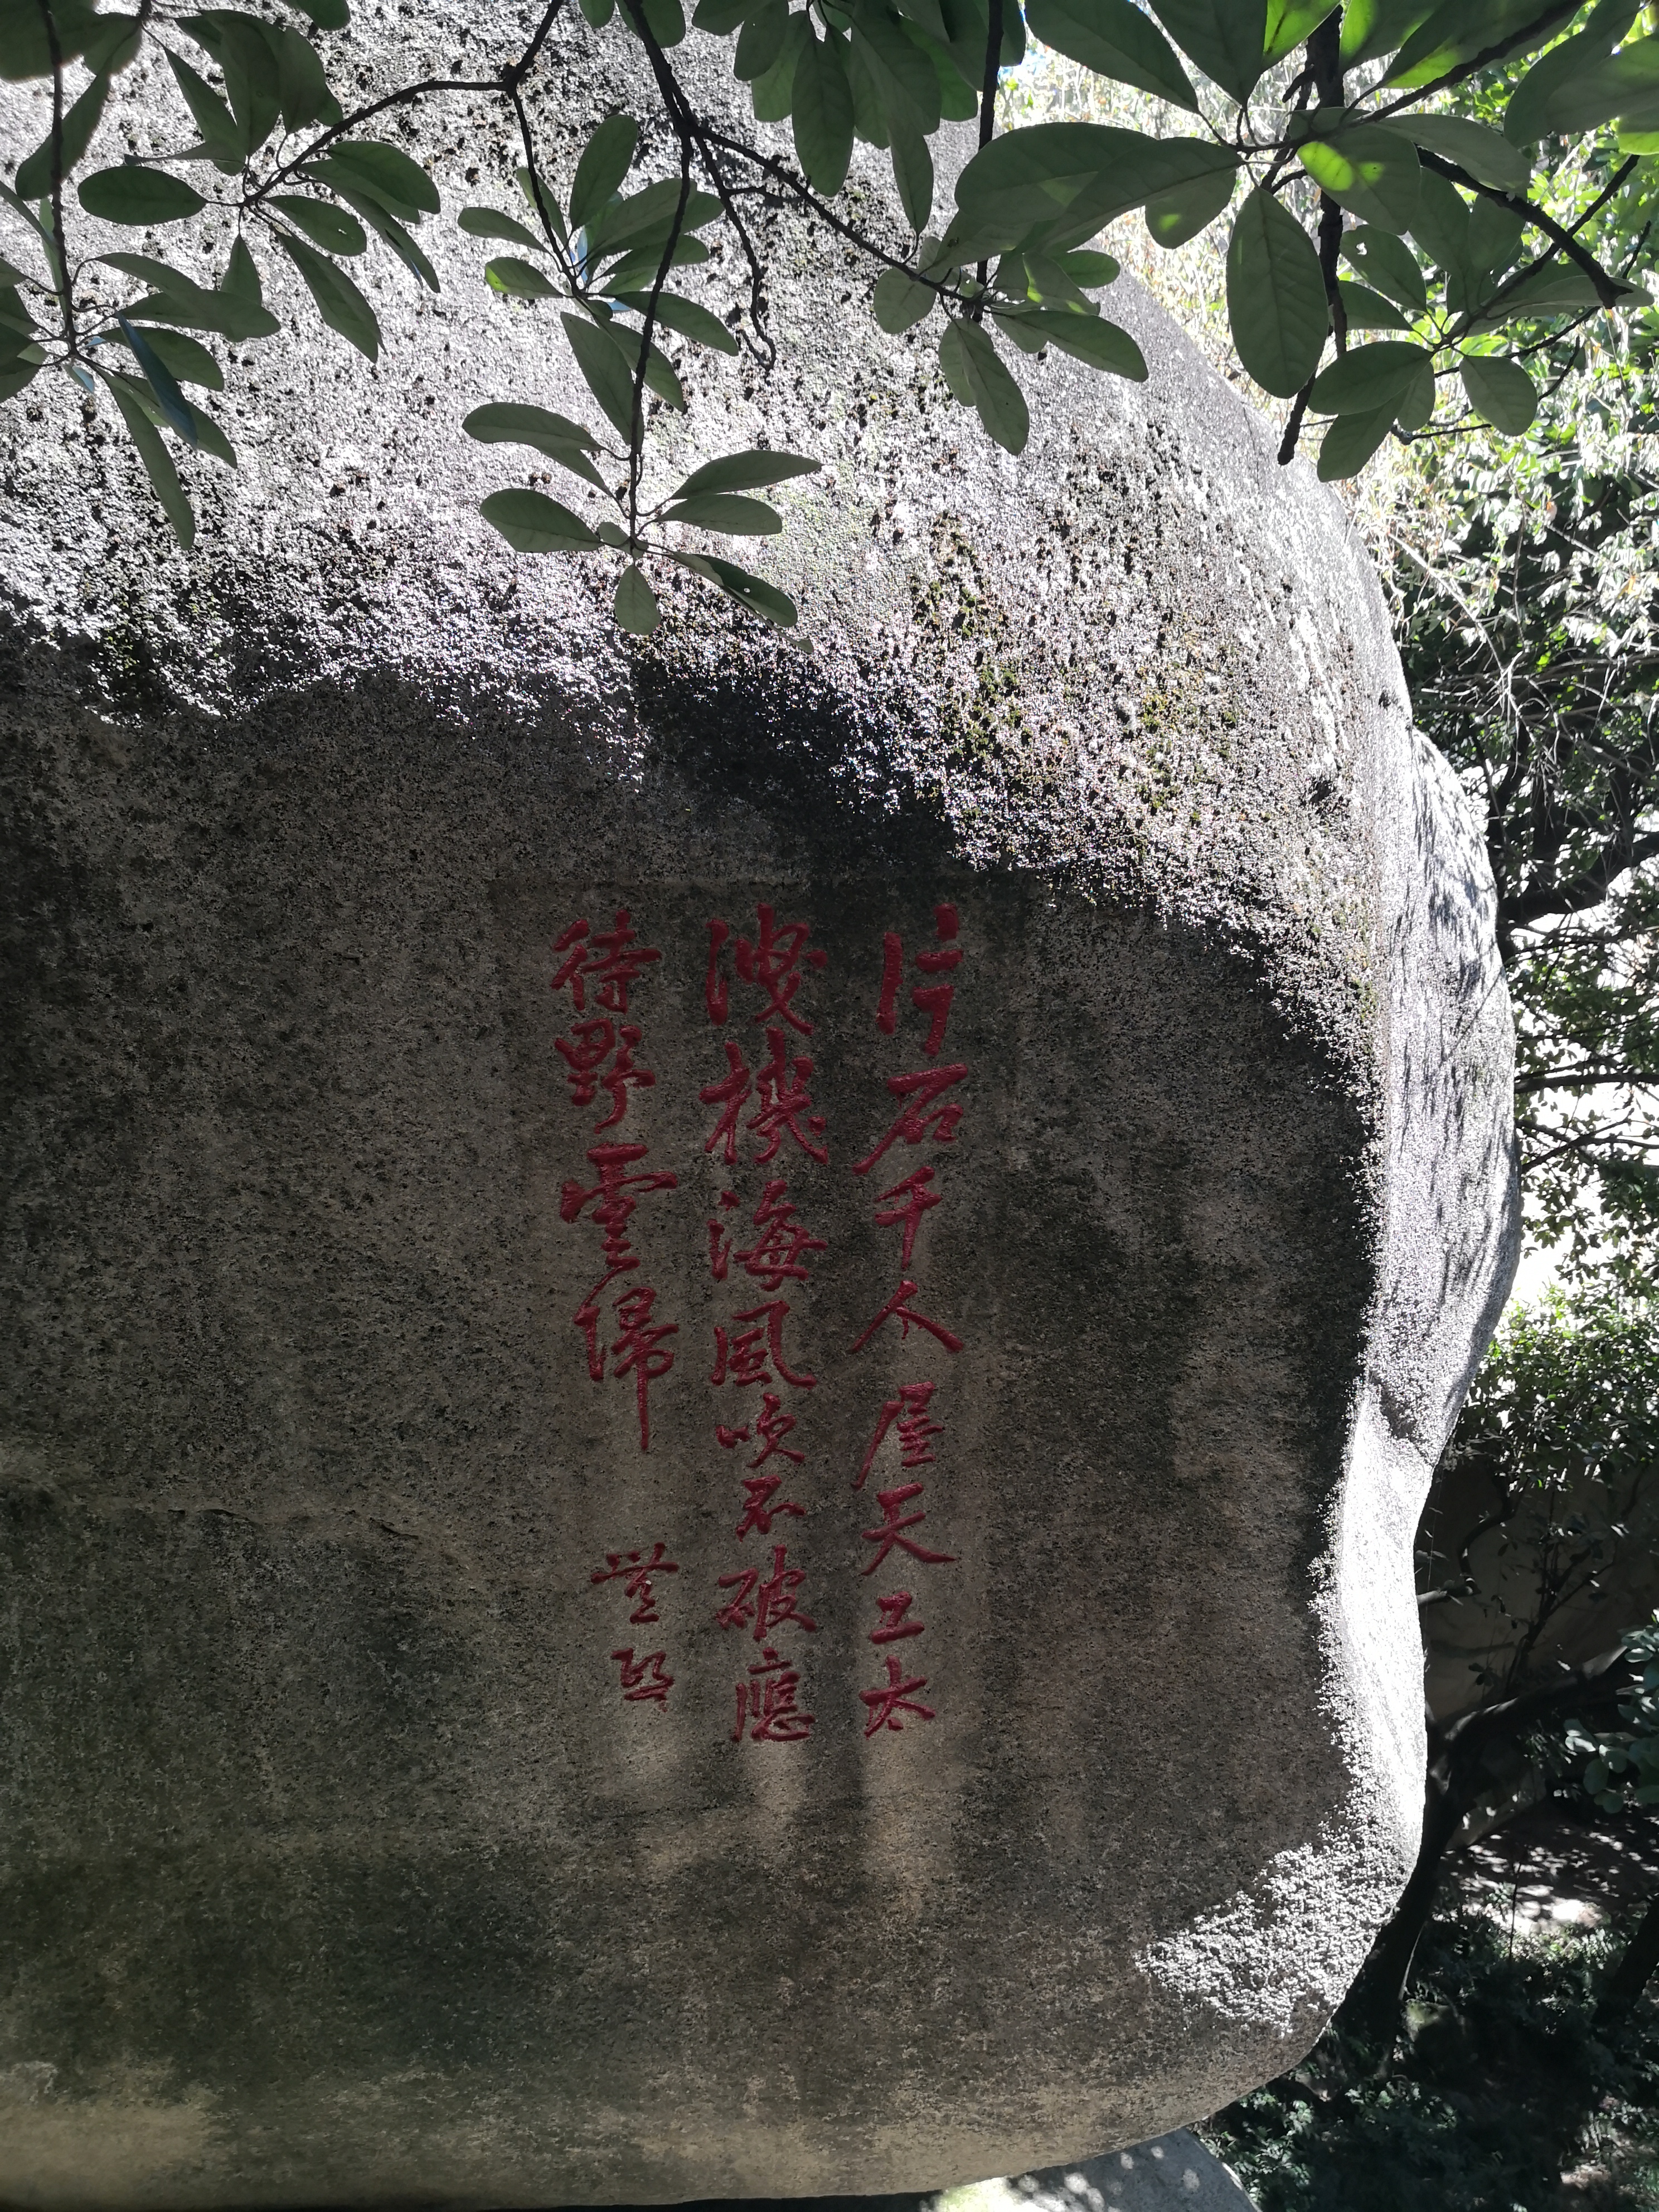 片石千人屋天工太
洩機海風吹不破應
待野雲歸